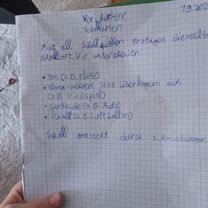 Verschiedene
Schallarten
Nicht all Schallquellen erzeugen dieselbe
Schallart. Wir unterscheiden
• Ton (z.B. Flöte)
• Klang - mehrere Töne überlagern sich
(z.B. Windspiel)
• Geräusche (z.B. Auto)
• Knall (z.B. Luftballon)
Schall entsteht durch Schwingungen.